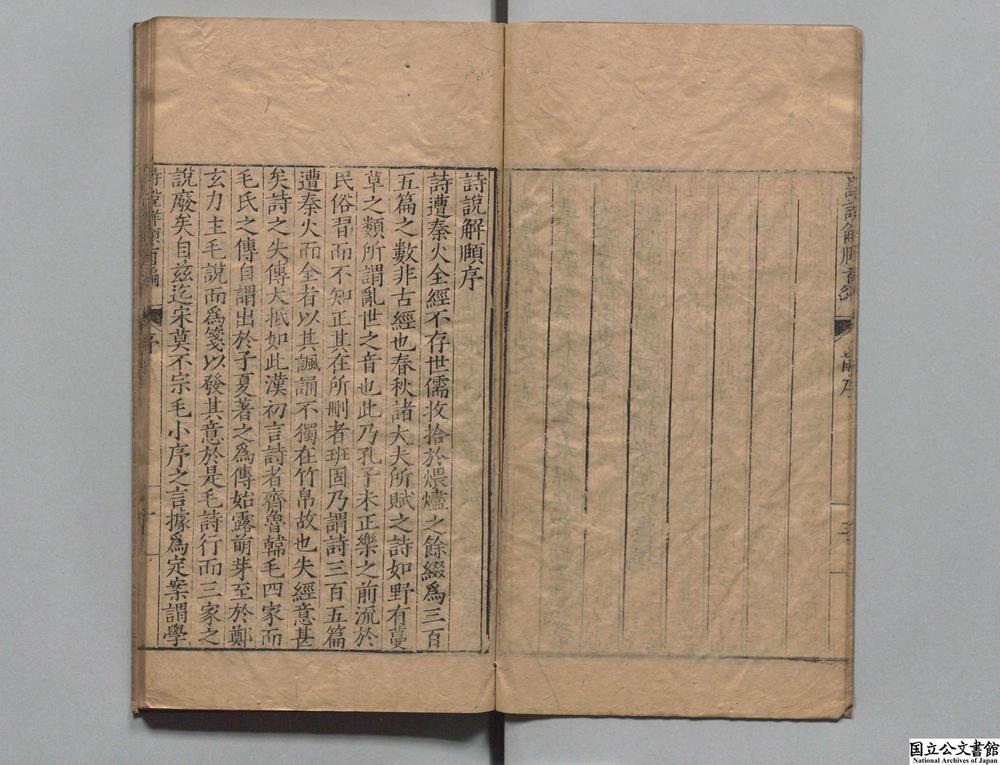 詩說解頤序
詩遭秦火全經不存世儒收拾於煨燼之餘綴爲三百
五篇之數非古經也春秋諸大夫所賦之詩如野有蔓
草之類所謂亂世之音也此乃孔子未正樂之前流於
民俗習而不知正其在所刪者班固乃謂詩三百五篇
遭秦火而全者以其諷誦不獨在竹帛故也失經意甚
矣詩之失傳大抵如此漢初言詩者齊魯韓毛四家而
毛氏之傳自謂出於子夏著之爲傳始露萌芽至於鄭
玄力主毛說而爲箋以發其意於是毛詩行而三家之
說廢矣自兹迄宋莫不宗毛小序之言據爲定案謂學
序
一
國立公文書館
National Archives of Japan